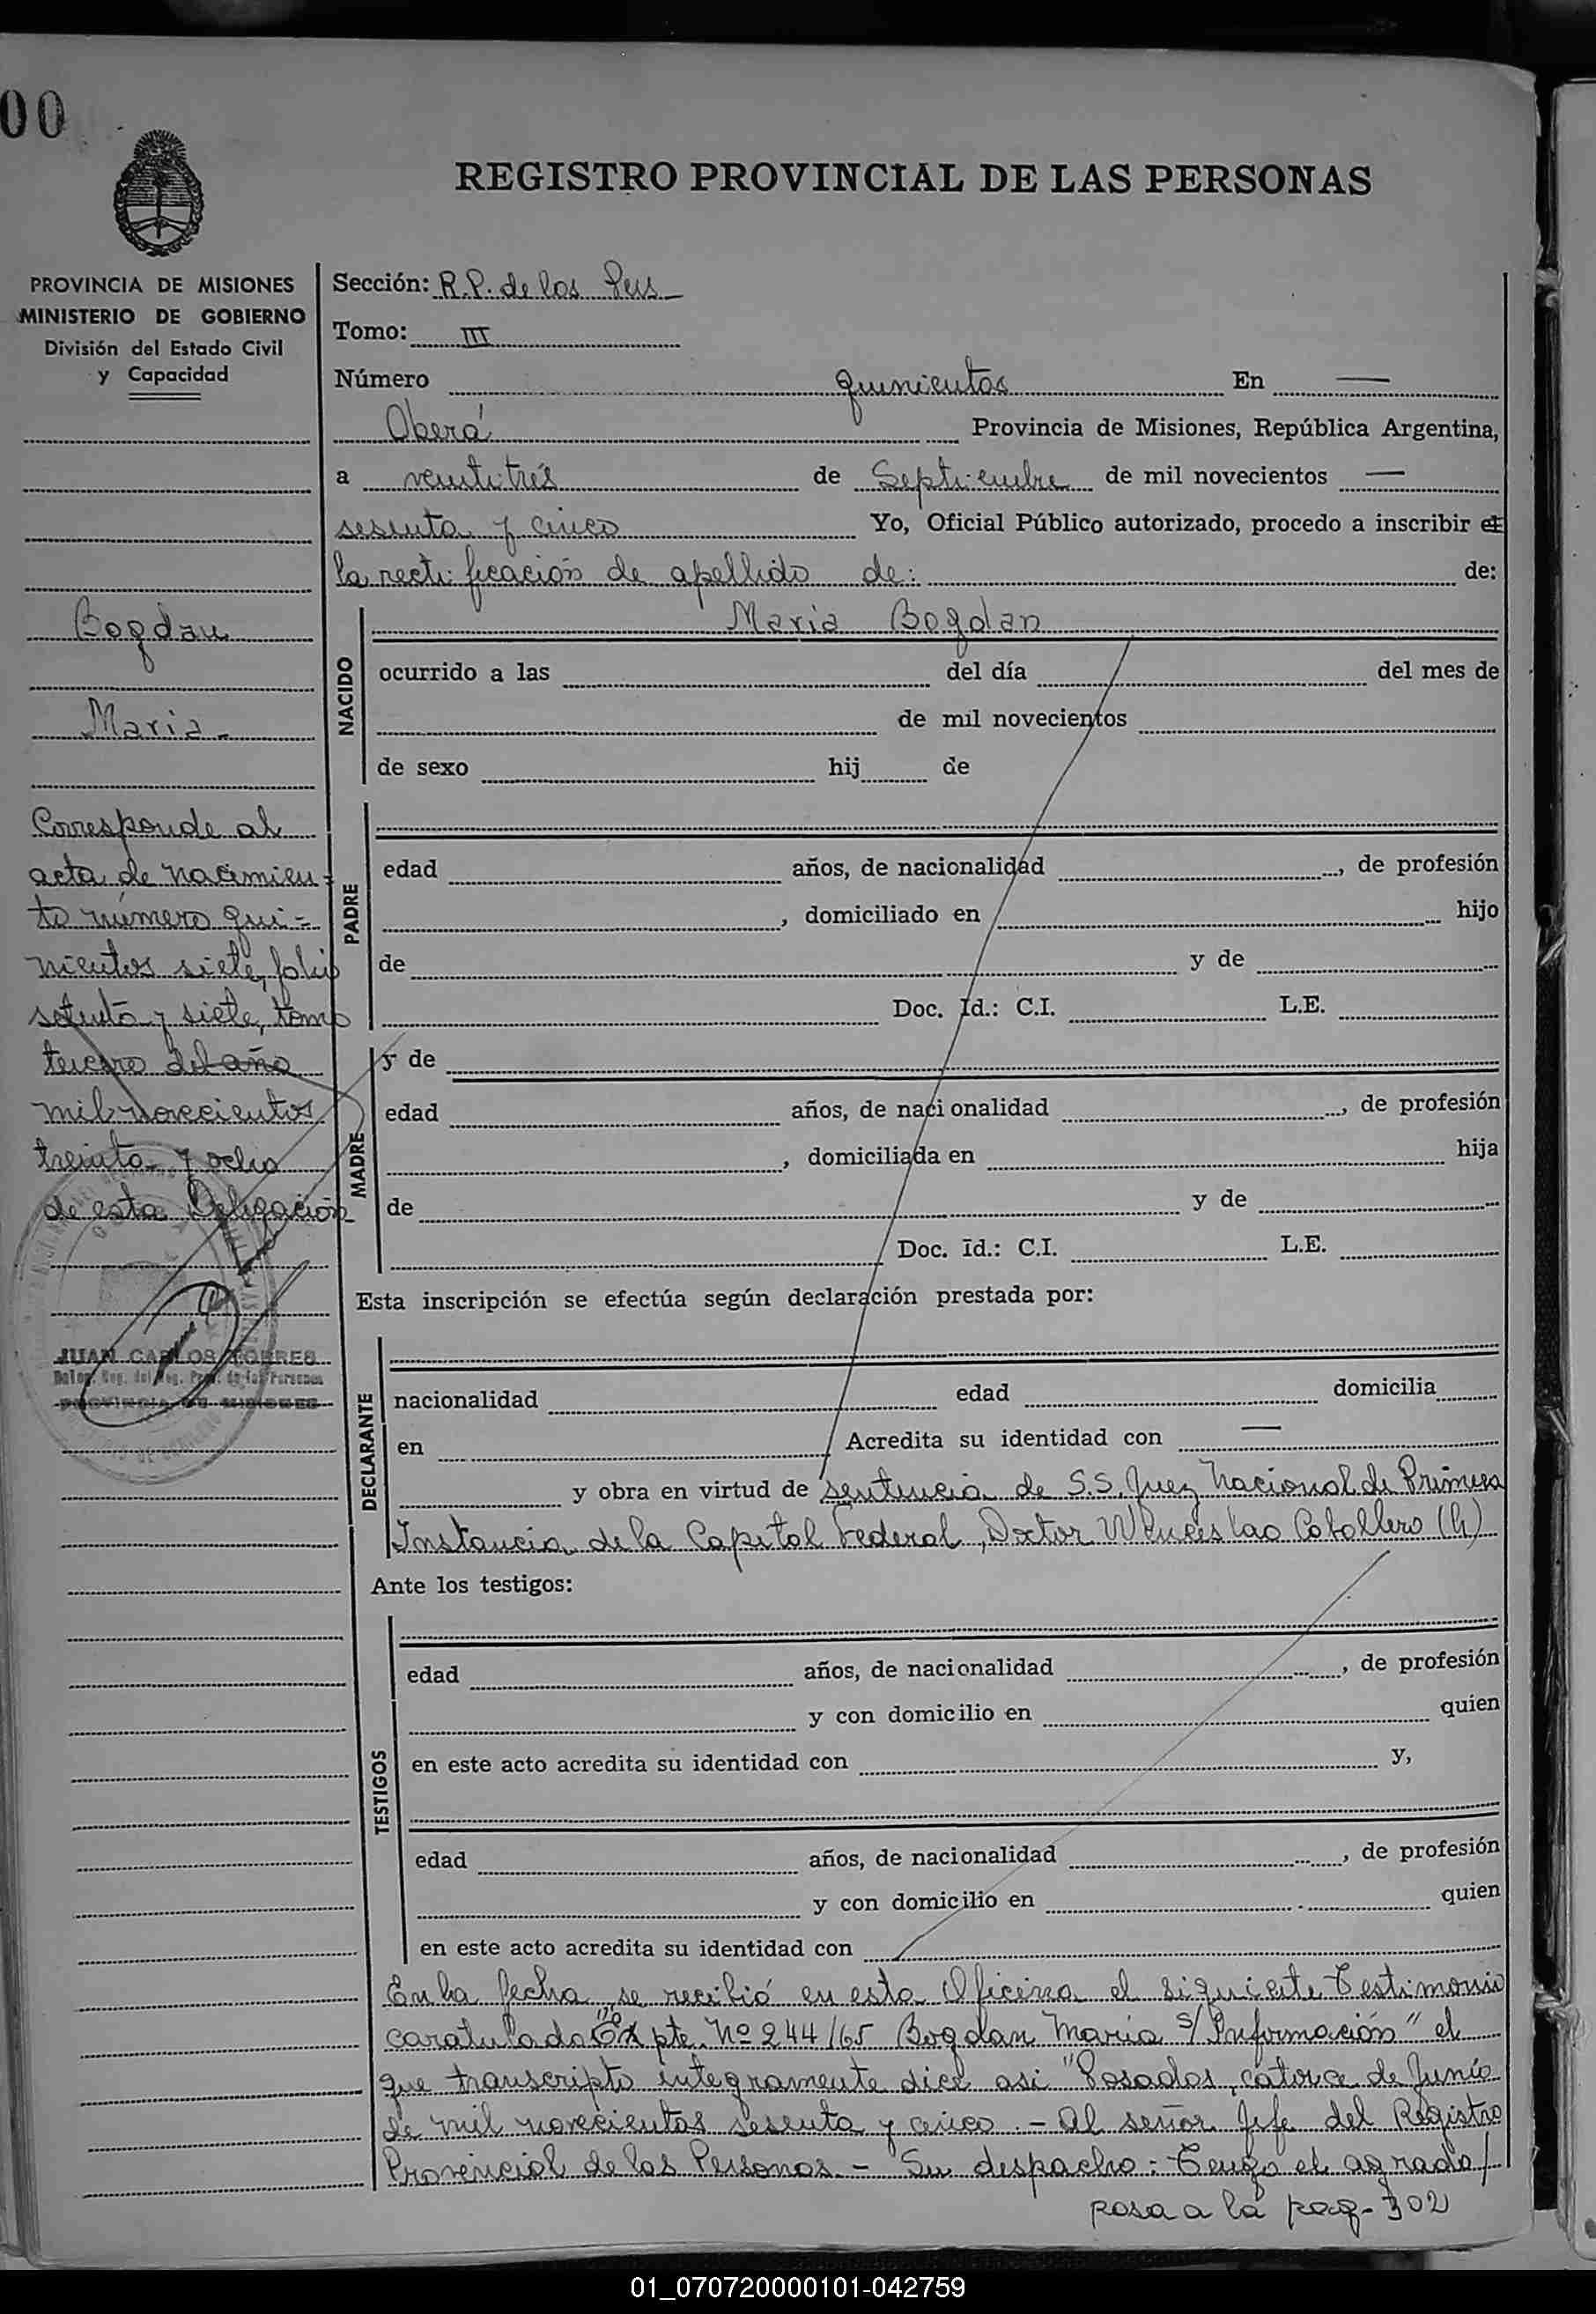 00
REGISTRO PROVINCIAL DE LAS PERSONAS
PROVINCIA DE MISIONES
MINISTERIO DE GOBIERNO
División del Estado Civil
y Capacidad
Bogdan
Maria-
Corresponde al
acta de nacimien=
to número qui=
nientos siete, folio
setenta y siete, tomo
tercero del año
mil novecientos
treinta y ocho
de esta Delegación
JUAN CARLOS TORRES
Deleg. Reg. del Reg. Prov. de las Personas
PROVINCIA DE MISIONES
Sección: R.P. de los Pers
Tomo: III
Número quinientos En —
Oberá Provincia de Misiones, República Argentina,
a veintitrés de Septiembre de mil novecientos —
sesenta y cinco Yo, Oficial Público autorizado, procedo a inscribir el
la rectificación de apellido de: de:
NACIDO
Maria Bogdan
ocurrido a las del día del mes de
de mil novecientos
de sexo hij de
PADRE
edad años, de nacionalidad , de profesión
, domiciliado en hijo
de y de
Doc. Id.: C.I. L.E.
MADRE
y de
edad años, de nacionalidad , de profesión
, domiciliada en hija
de y de
Doc. Id.: C.I. L.E.
Esta inscripción se efectúa según declaración prestada por:
DECLARANTE
nacionalidad edad domicilia
en Acredita su identidad con —
y obra en virtud de sentencia de S.S. Juez Nacional de Primera
Instancia de la Capital Federal, Doctor Wenceslao Caballero (h)
Ante los testigos:
TESTIGOS
edad años, de nacionalidad , de profesión
y con domicilio en quien
en este acto acredita su identidad con y,
edad años, de nacionalidad , de profesión
y con domicilio en quien
en este acto acredita su identidad con
En la fecha se recibió en esta Oficina el siguiente Testimonio
caratulado "Expte. Nº 244/65 Bogdan Maria s/ Información" el
que transcripto integramente dice asi "Posadas, catorce de Junio
de mil novecientos sesenta y cinco.- Al señor Jefe del Registro
Provincial de las Personas.- Su despacho: Tengo el agrado/
pasa a la pag- 302
01_070720000101-042759